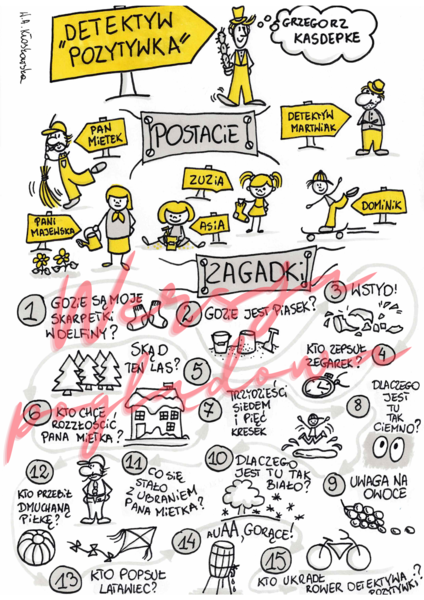 H.A. Kłoskowska
DETEKTYW
"POZYTYWKA"
GRZEGORZ
KASDEPKE
PAN
MIETEK
POSTACIE
DETEKTYW
MARTWIAK
ZUZIA
PANI
MAJEWSKA
ASIA
DOMINIK
ZAGADKI
1 GDZIE SĄ MOJE
SKARPETKI
WOELFINY?
2 GDZIE JEST PIASEK?
3 WSTYD!
KTO ZEPSUŁ 4
ZEGAREK?
SKĄD
TEN LAS? 5
6 KTO CHCE
ROZZŁOŚCIĆ
PANA MIETKA?
7 TRZYDZIEŚCI
SIEDEM
I PIĘĆ
KRESEK
8 DLACZEGO
JEST
TU TAK
CIEMNO?
12
KTO PRZEBIŁ
DMUCHANĄ
PIŁKĘ?
11 CO SIĘ
STAŁO
Z UBRANIEM
PANA MIETKA?
10 DLACZEGO
JEST TU TAK
BIAŁO?
9 UWAGA NA
OWOCE
13 KTO POPSUŁ
LATAWIEC?
14 AUAA, GORĄCE!
15
KTO UKRADŁ
ROWER DETEKTYWA
POZYTYWKI?
Wersja
poglądowa